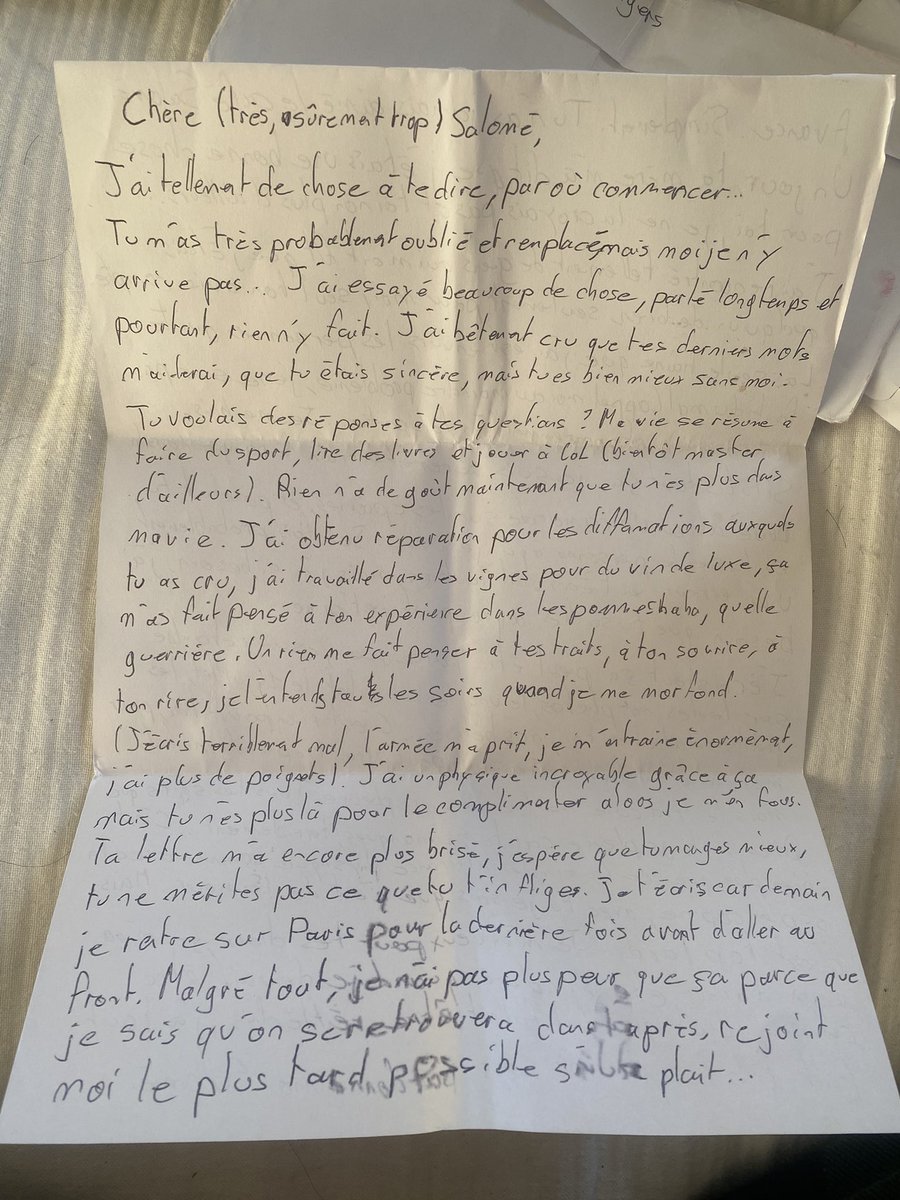 gens
Chère (très, sûrement trop) Salomé,
J'ai tellement de chose à te dire, par où commencer...
Tu m'as très probablement oublié et remplacé mais moi je n'y
arrive pas... J'ai essayé beaucoup de chose, parté longtemps et
pourtant, rien n'y fait. J'ai bêtement cru que tes derniers mots
m'aiderai, que tu étais sincère, mais tu es bien mieux sans moi.
Tu voulais des réponses à tes questions ? Ma vie se résume à
faire du sport, lire des livres et jouer à LoL (bientôt master
d'ailleurs). Rien n'a de goût maintenant que tu n'es plus dans
ma vie. J'ai obtenu réparation pour les diffamations auxquels
tu as cru, j'ai travaillé dans les vignes pour du vin de luxe, ça
m'as fait pensé à ton expérience dans les pommes haha, quelle
guerrière. Un rien me fait penser à tes traits, à ton sourire, à
ton rire, je l'entends tout les soirs quand je me morfond.
(J'écris terriblement mal, l'armée m'a prit, je m'entraine énormément,
j'ai plus de poignets). J'ai un physique incroyable grâce à ça
mais tu n'es plus là pour le complimenter alors je m'en fous.
Ta lettre m'a encore plus brisé, j'espère que tu manges mieux,
tu ne mérites pas ce que tu t'infliges. Je t'écris car demain
je rentre sur Paris pour la dernière fois avant d'aller au
front. Malgré tout, je n'ai pas plus peur que ça parce que
je sais qu'on se retrouvera dans l'après, rejoint
moi le plus tard possible s'il te plait...